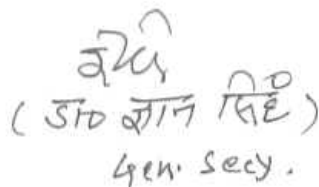 ( डा० ज्ञान सिंह )
Gen. Secy.